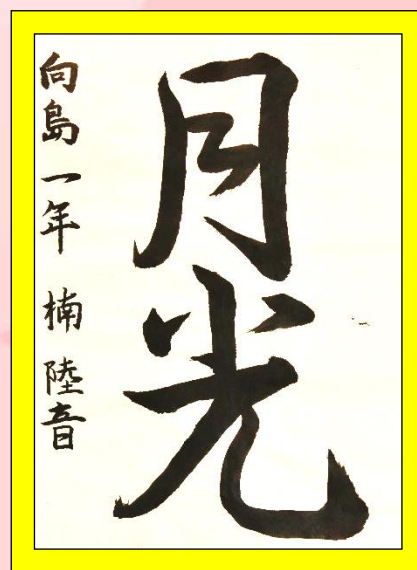 月光
向島一年 楠 陸音